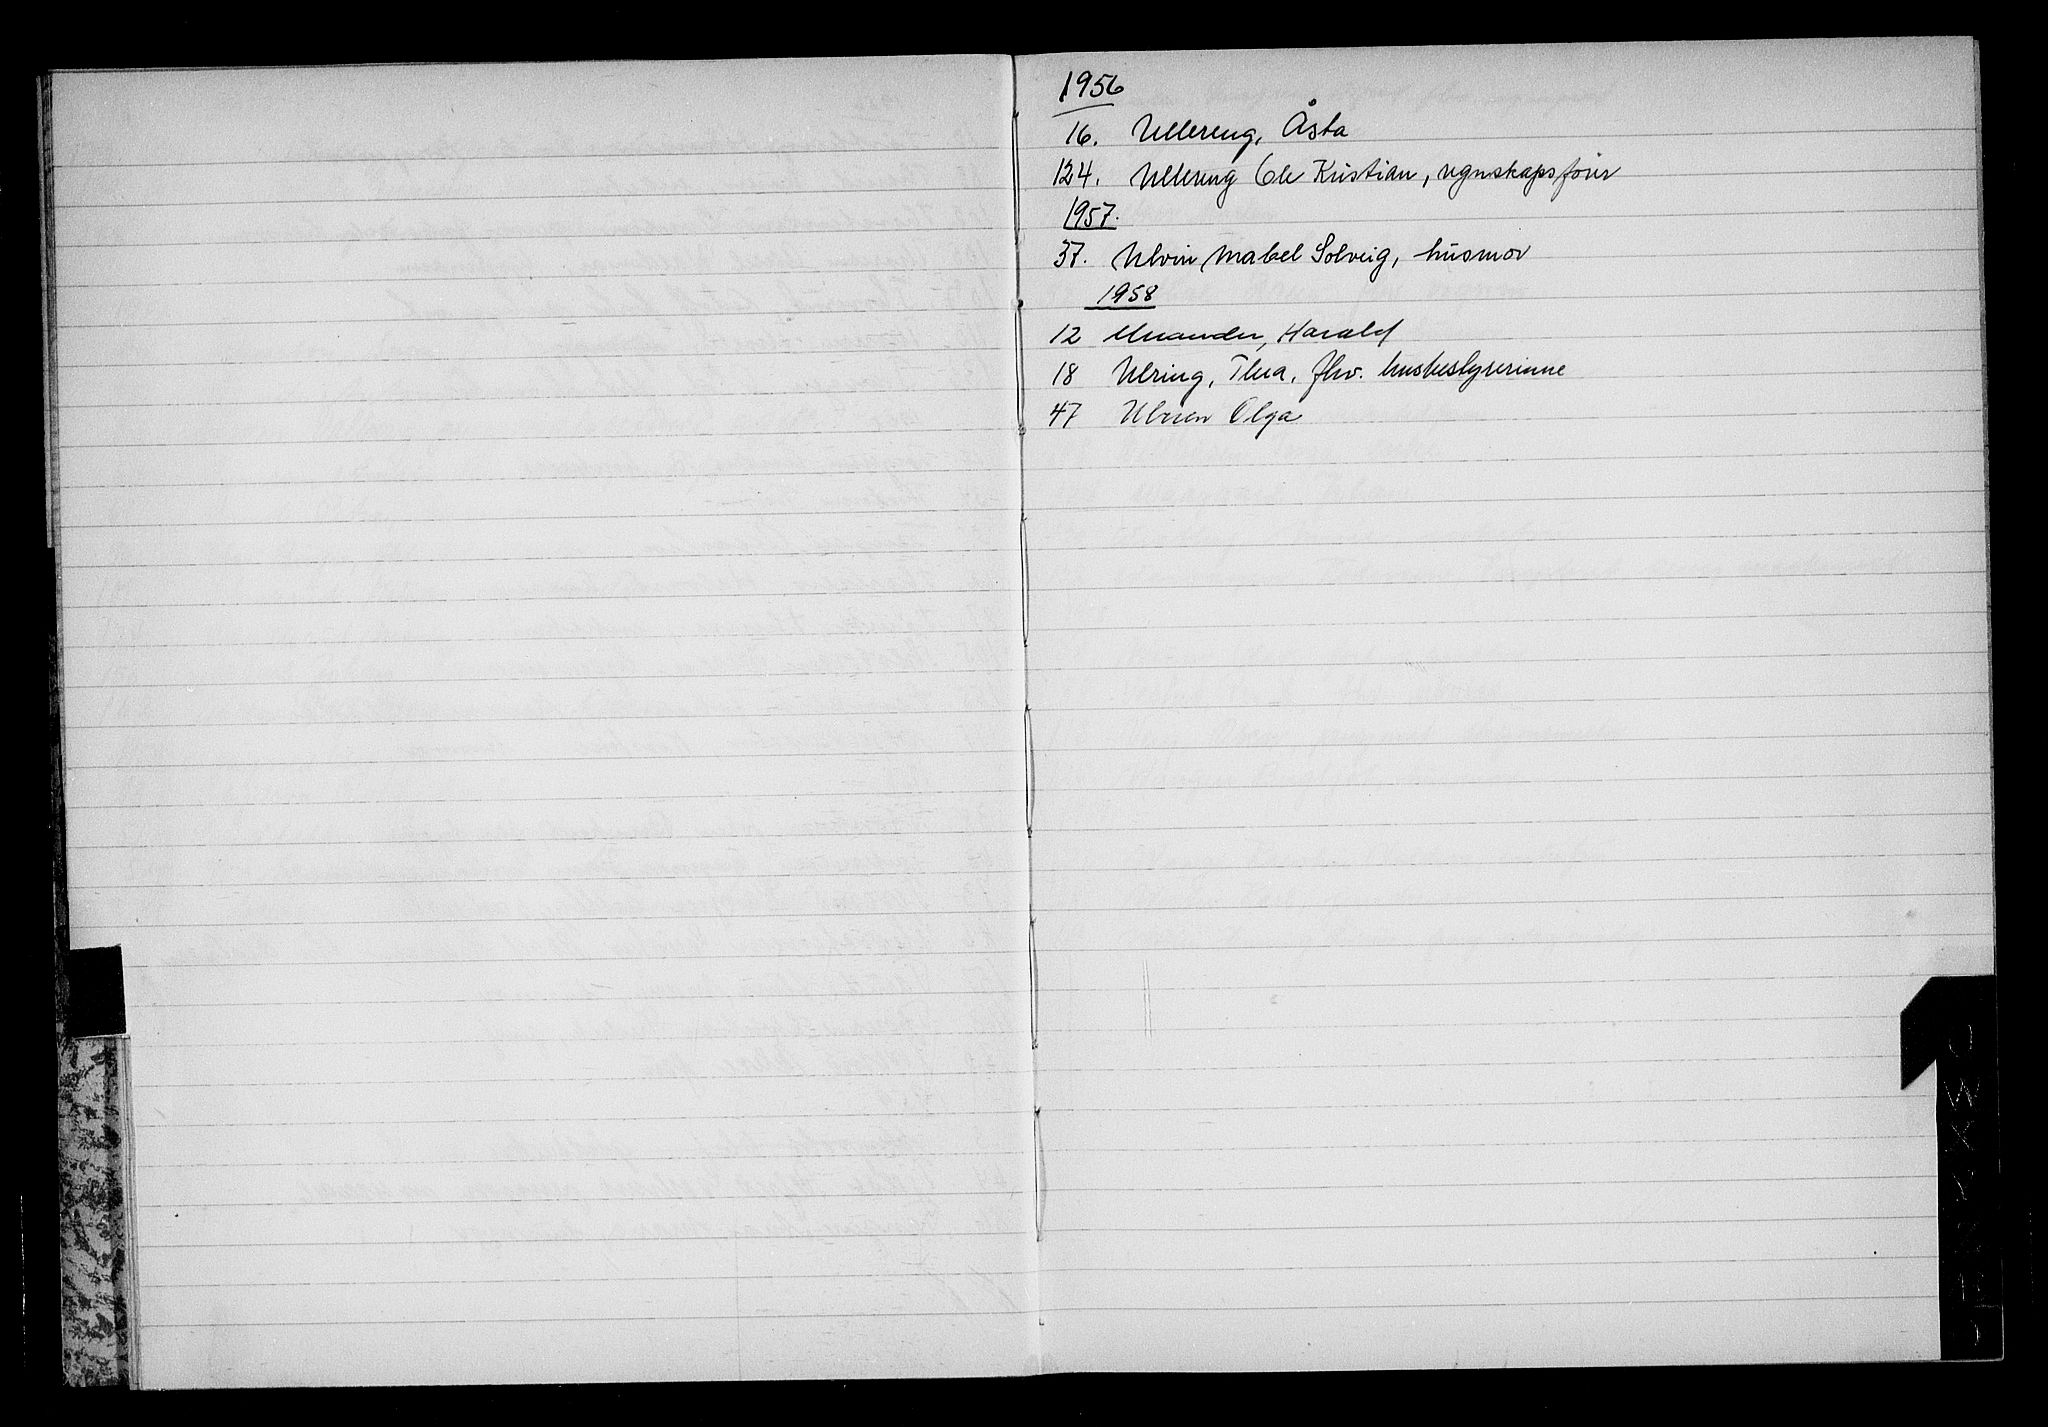 1956
16. Ullereng, Åsta
124. Ullereng Ole Kristian, regnskapsfører
1957.
37. Ulvin Mabel Solveig, husmor
1958
12 Unander, Harald
18 Ulring, Thea, fhv. husbestyrerinne
47 Ulvren Olga